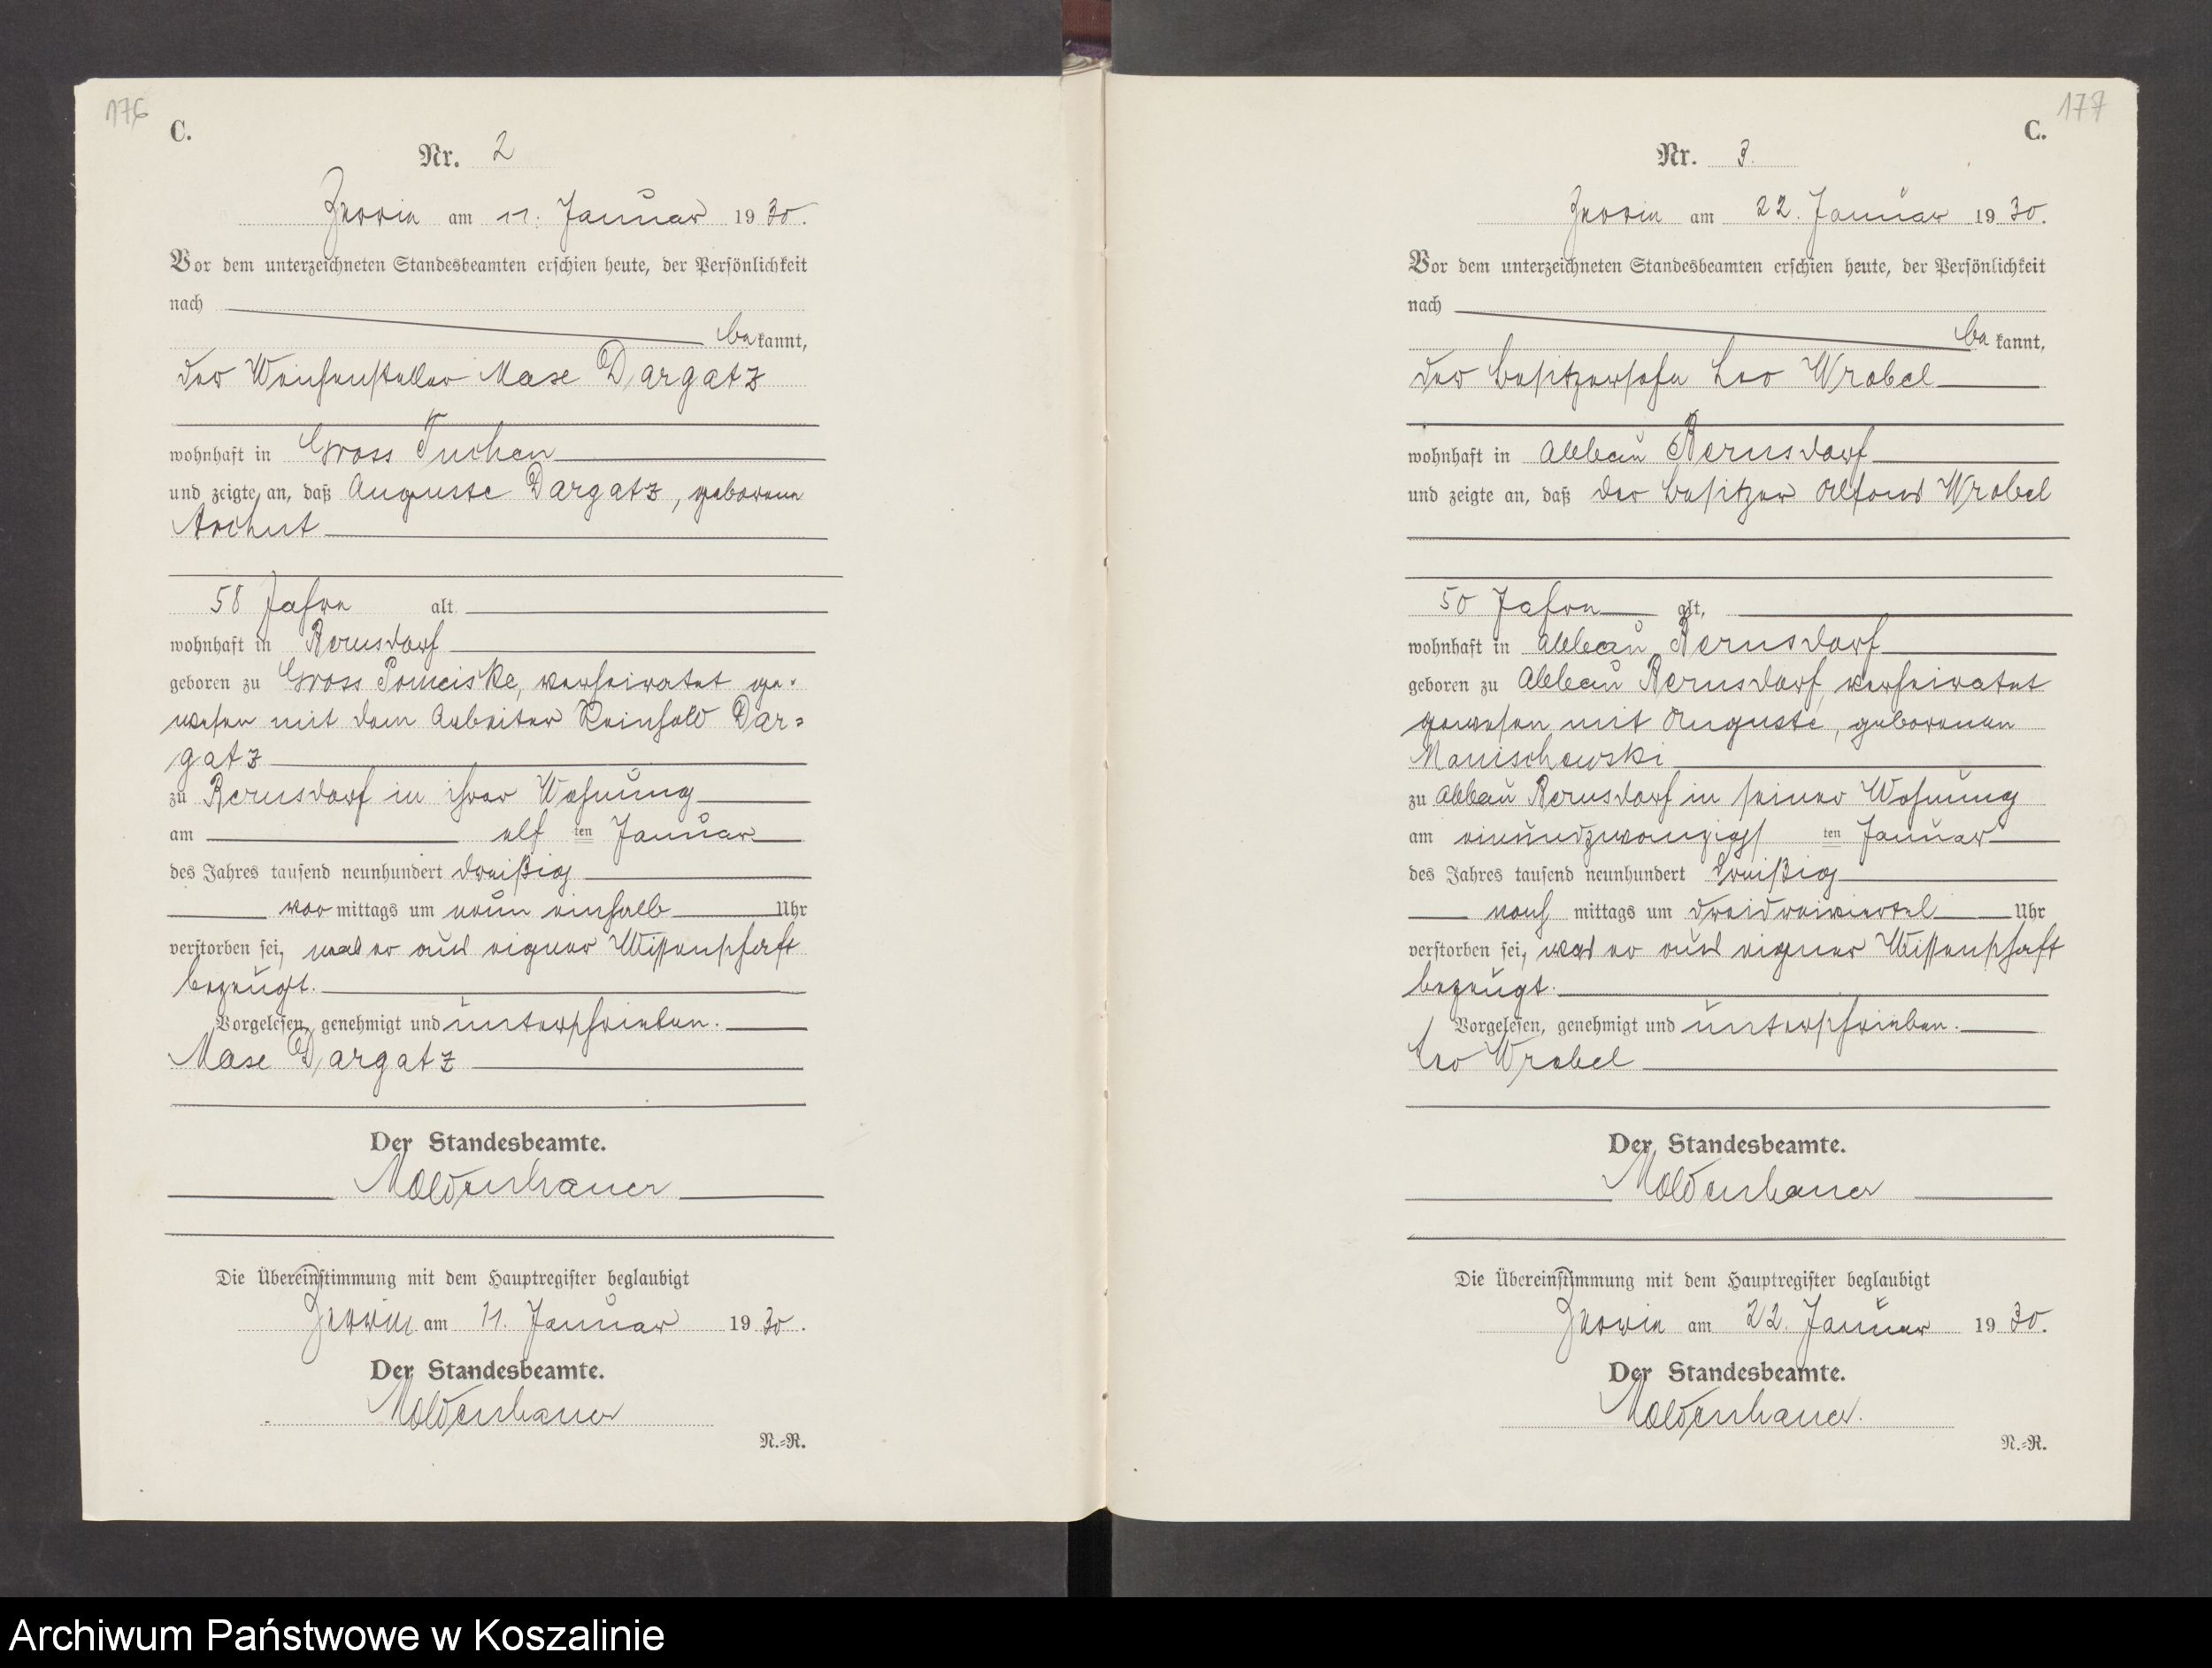 176
C.
Nr. 2
Jassen am 11. Januar 1930.
Vor dem unterzeichneten Standesbeamten erschien heute, der Persönlichkeit
nach
be kannt,
der Weichensteller Max Dargatz
wohnhaft in Gross Tuchen
und zeigte an, daß Auguste Dargatz, geborene
Arndt
58 Jahre alt
wohnhaft in Bernsdorf
geboren zu Gross Pomeiske, verheiratet ge-
wesen mit dem Arbeiter Reinhold Dar=
gatz
zu Bernsdorf in ihrer Wohnung
am elf ten Januar
des Jahres tausend neunhundert dreißig
vor mittags um neun einhalb Uhr
verstorben sei, was er aus eigner Wissenschaft
bezeugt.
Vorgelesen, genehmigt und unterschrieben.
Max Dargatz
Der Standesbeamte.
Moldenhauer
Die Übereinstimmung mit dem Hauptregister beglaubigt
am 11. Januar 1930.
Der Standesbeamte.
Moldenhauer
N.=R.
177
C.
Nr. 3.
am 22. Januar 1930.
Vor dem unterzeichneten Standesbeamten erschien heute, der Persönlichkeit
nach
be kannt,
der Besitzersohn Leo Wrobel
wohnhaft in Abbau Bernsdorf
und zeigte an, daß der Besitzer Alfons Wrobel
50 Jahre alt,
wohnhaft in Abbau Bernsdorf
geboren zu Abbau Bernsdorf, verheiratet
gewesen mit Auguste, geborenen
Manischewski
zu Abbau Bernsdorf in seiner Wohnung
am einundzwanzigs ten Januar
des Jahres tausend neunhundert dreißig
nach mittags um dreidreiviertel Uhr
verstorben sei, was er aus eigner Wissenschaft
bezeugt.
Vorgelesen, genehmigt und unterschrieben.
Leo Wrobel
Der Standesbeamte.
Moldenhauer
Die Übereinstimmung mit dem Hauptregister beglaubigt
am 22. Januar 1930.
Der Standesbeamte.
Moldenhauer.
N.=R.
Archiwum Państwowe w Koszalinie